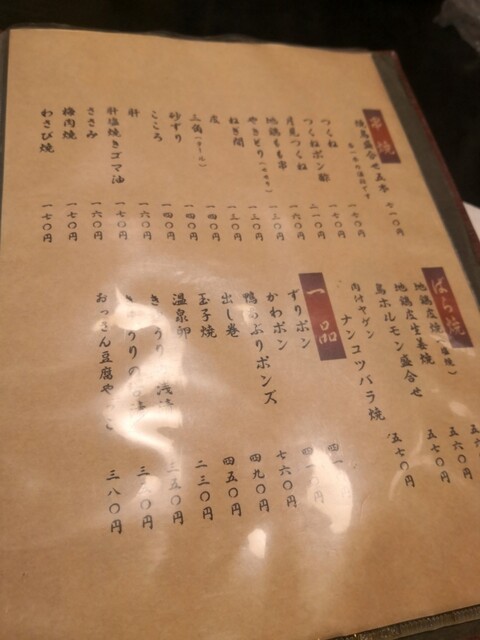 串焼
焼鳥盛合せ五本 七一〇円
つくね 一七〇円
つくねポン酢 一七〇円
月見つくね 二一〇円
地鶏もも串 一六〇円
やきとり 一三〇円
ねぎ間 一三〇円
皮 一四〇円
三角(テール) 一四〇円
砂ずり 一四〇円
こころ 一四〇円
肝 一六〇円
肝塩焼きゴマ油 一七〇円
ささみ 一六〇円
梅肉焼 一七〇円
わさび焼 一七〇円
ばら焼
地鶏皮焼
地鶏皮生姜焼
鳥ホルモン盛合せ 五七〇円
肉付ヤゲンナンコツバラ焼 五五〇円
一品
ずりポン
かわポン
鴨あぶりポンズ 七六〇円
出し巻 四九〇円
玉子焼 四五〇円
温泉卵 二三〇円
三五〇円
きゅうりの
おっさん豆腐やっこ 三八〇円